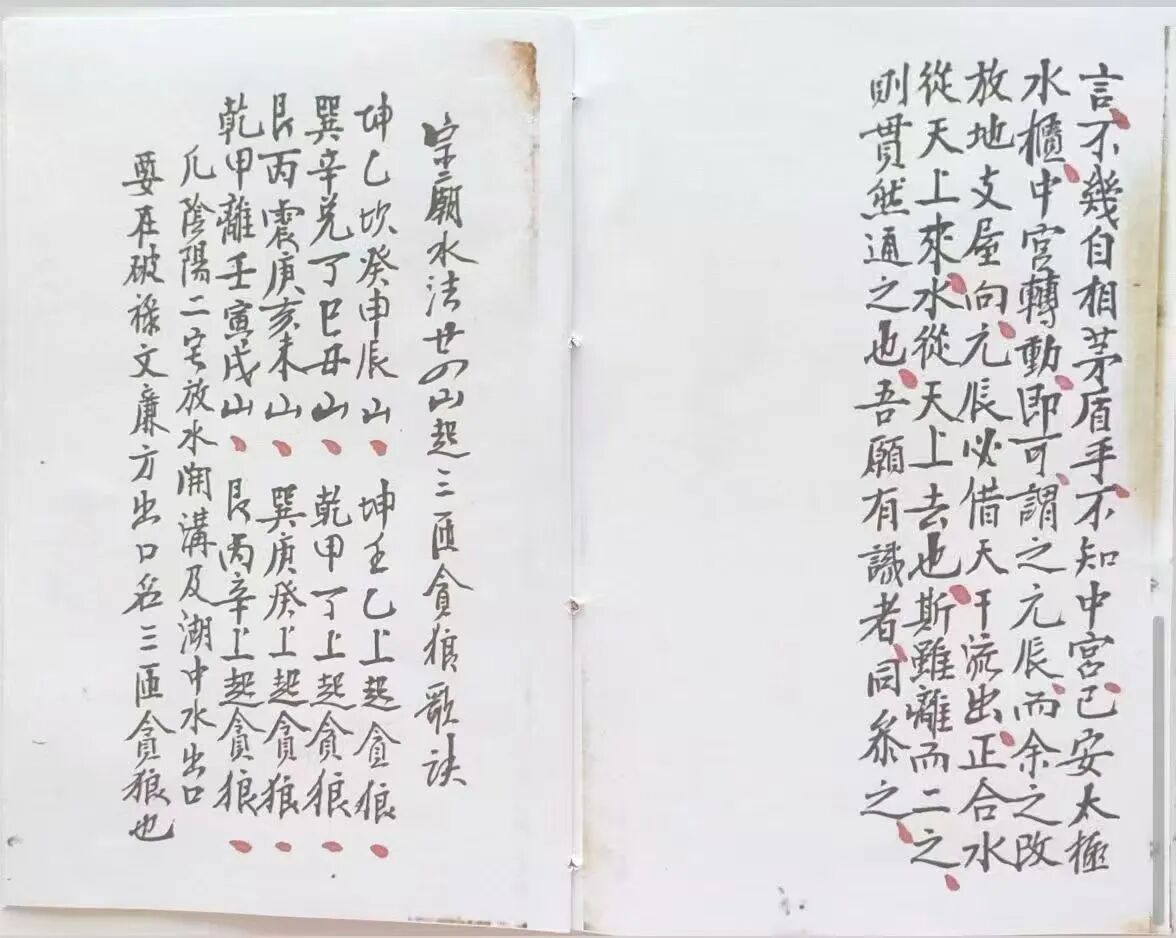 言不幾自相茅盾乎不知中宮已安太極
水櫃中宮轉動即可謂之元辰而余之改
放地支屋向元辰必借天干流出正合水
從天上來水從天上去也斯雖離而二之
則貫然通之也吾願有識者同叅之
宗廟水法廿四山起三匝貪狼歌訣
坤乙坎癸申辰山 坤壬乙上起貪狼
巽辛兌丁巳丑山 乾甲丁上起貪狼
艮丙震庚亥未山 巽庚癸上起貪狼
乾甲離壬寅戌山 艮丙辛上起貪狼
凡陰陽二宅放水開溝及湖中水出口
要在破祿文廉方出口名三匝貪狼也